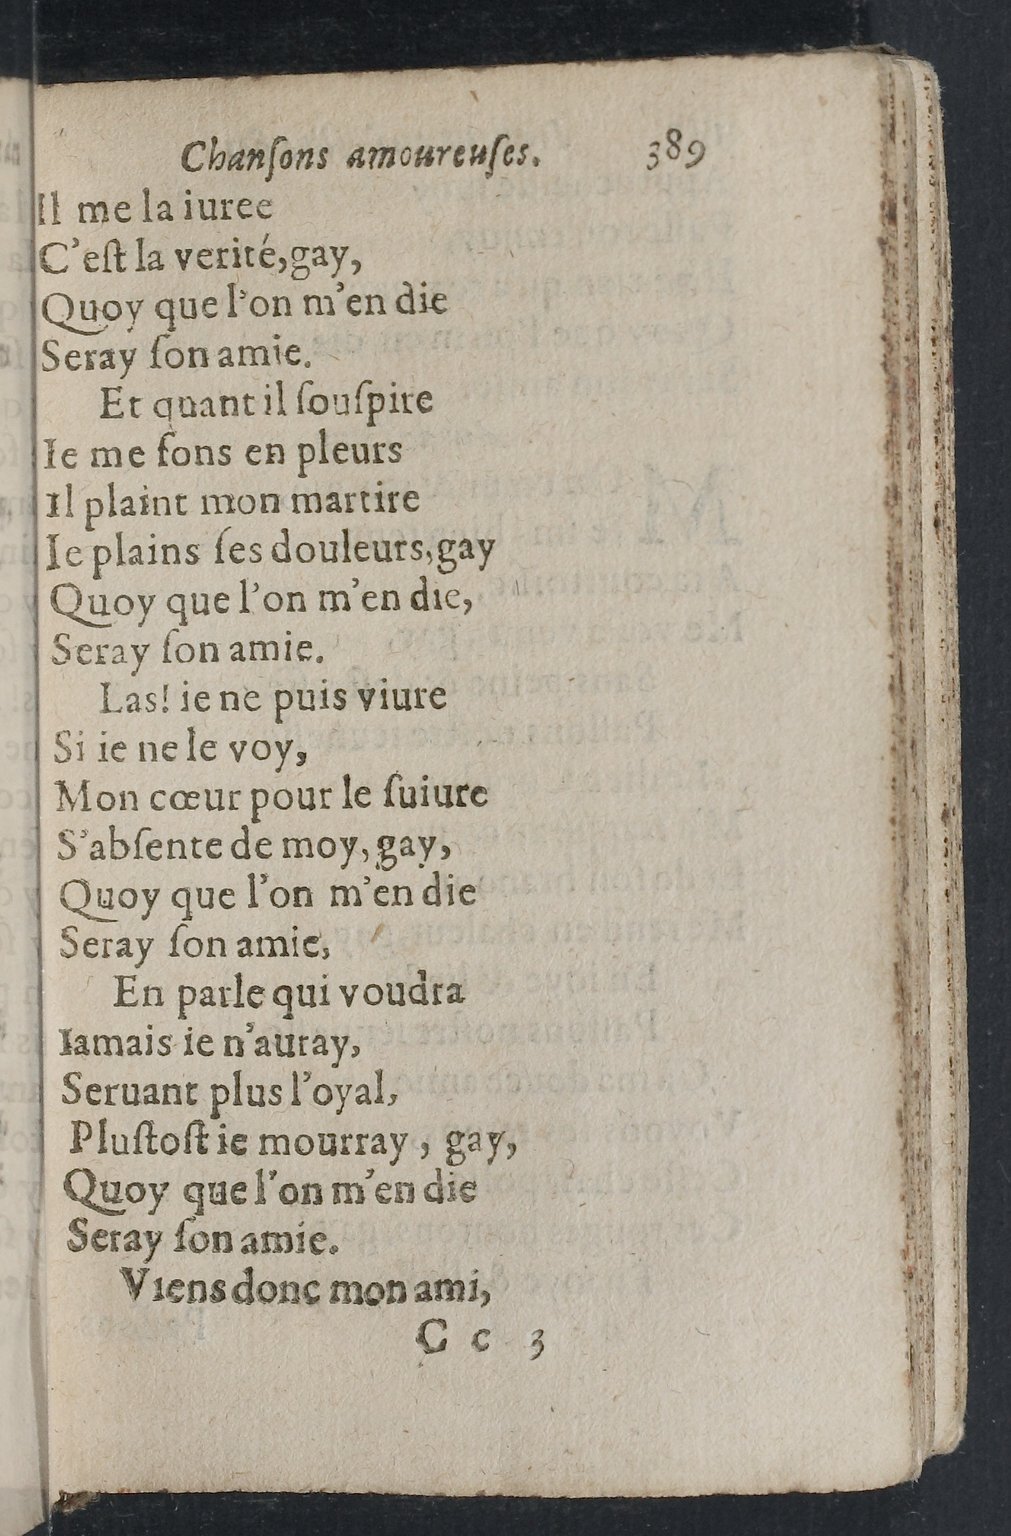 Chanſons amoureuſes. 389
Il me la iuree
C'eſt la verité,gay,
Quoy que l'on m'en die
Seray ſon amie.
Et quant il ſouſpire
Ie me fons en pleurs
Il plaint mon martire
Ie plains ſes douleurs,gay
Quoy que l'on m'en die,
Seray ſon amie.
Las! ie ne puis viure
Si ie ne le voy,
Mon cœur pour le ſuiure
S'abſente de moy, gay,
Quoy que l'on m'en die
Seray ſon amie,
En parle qui voudra
Iamais ie n'auray,
Seruant plus l'oyal,
Pluſtoſt ie mourray , gay,
Quoy que l'on m'en die
Seray ſon amie.
Viens donc mon ami,
C c 3